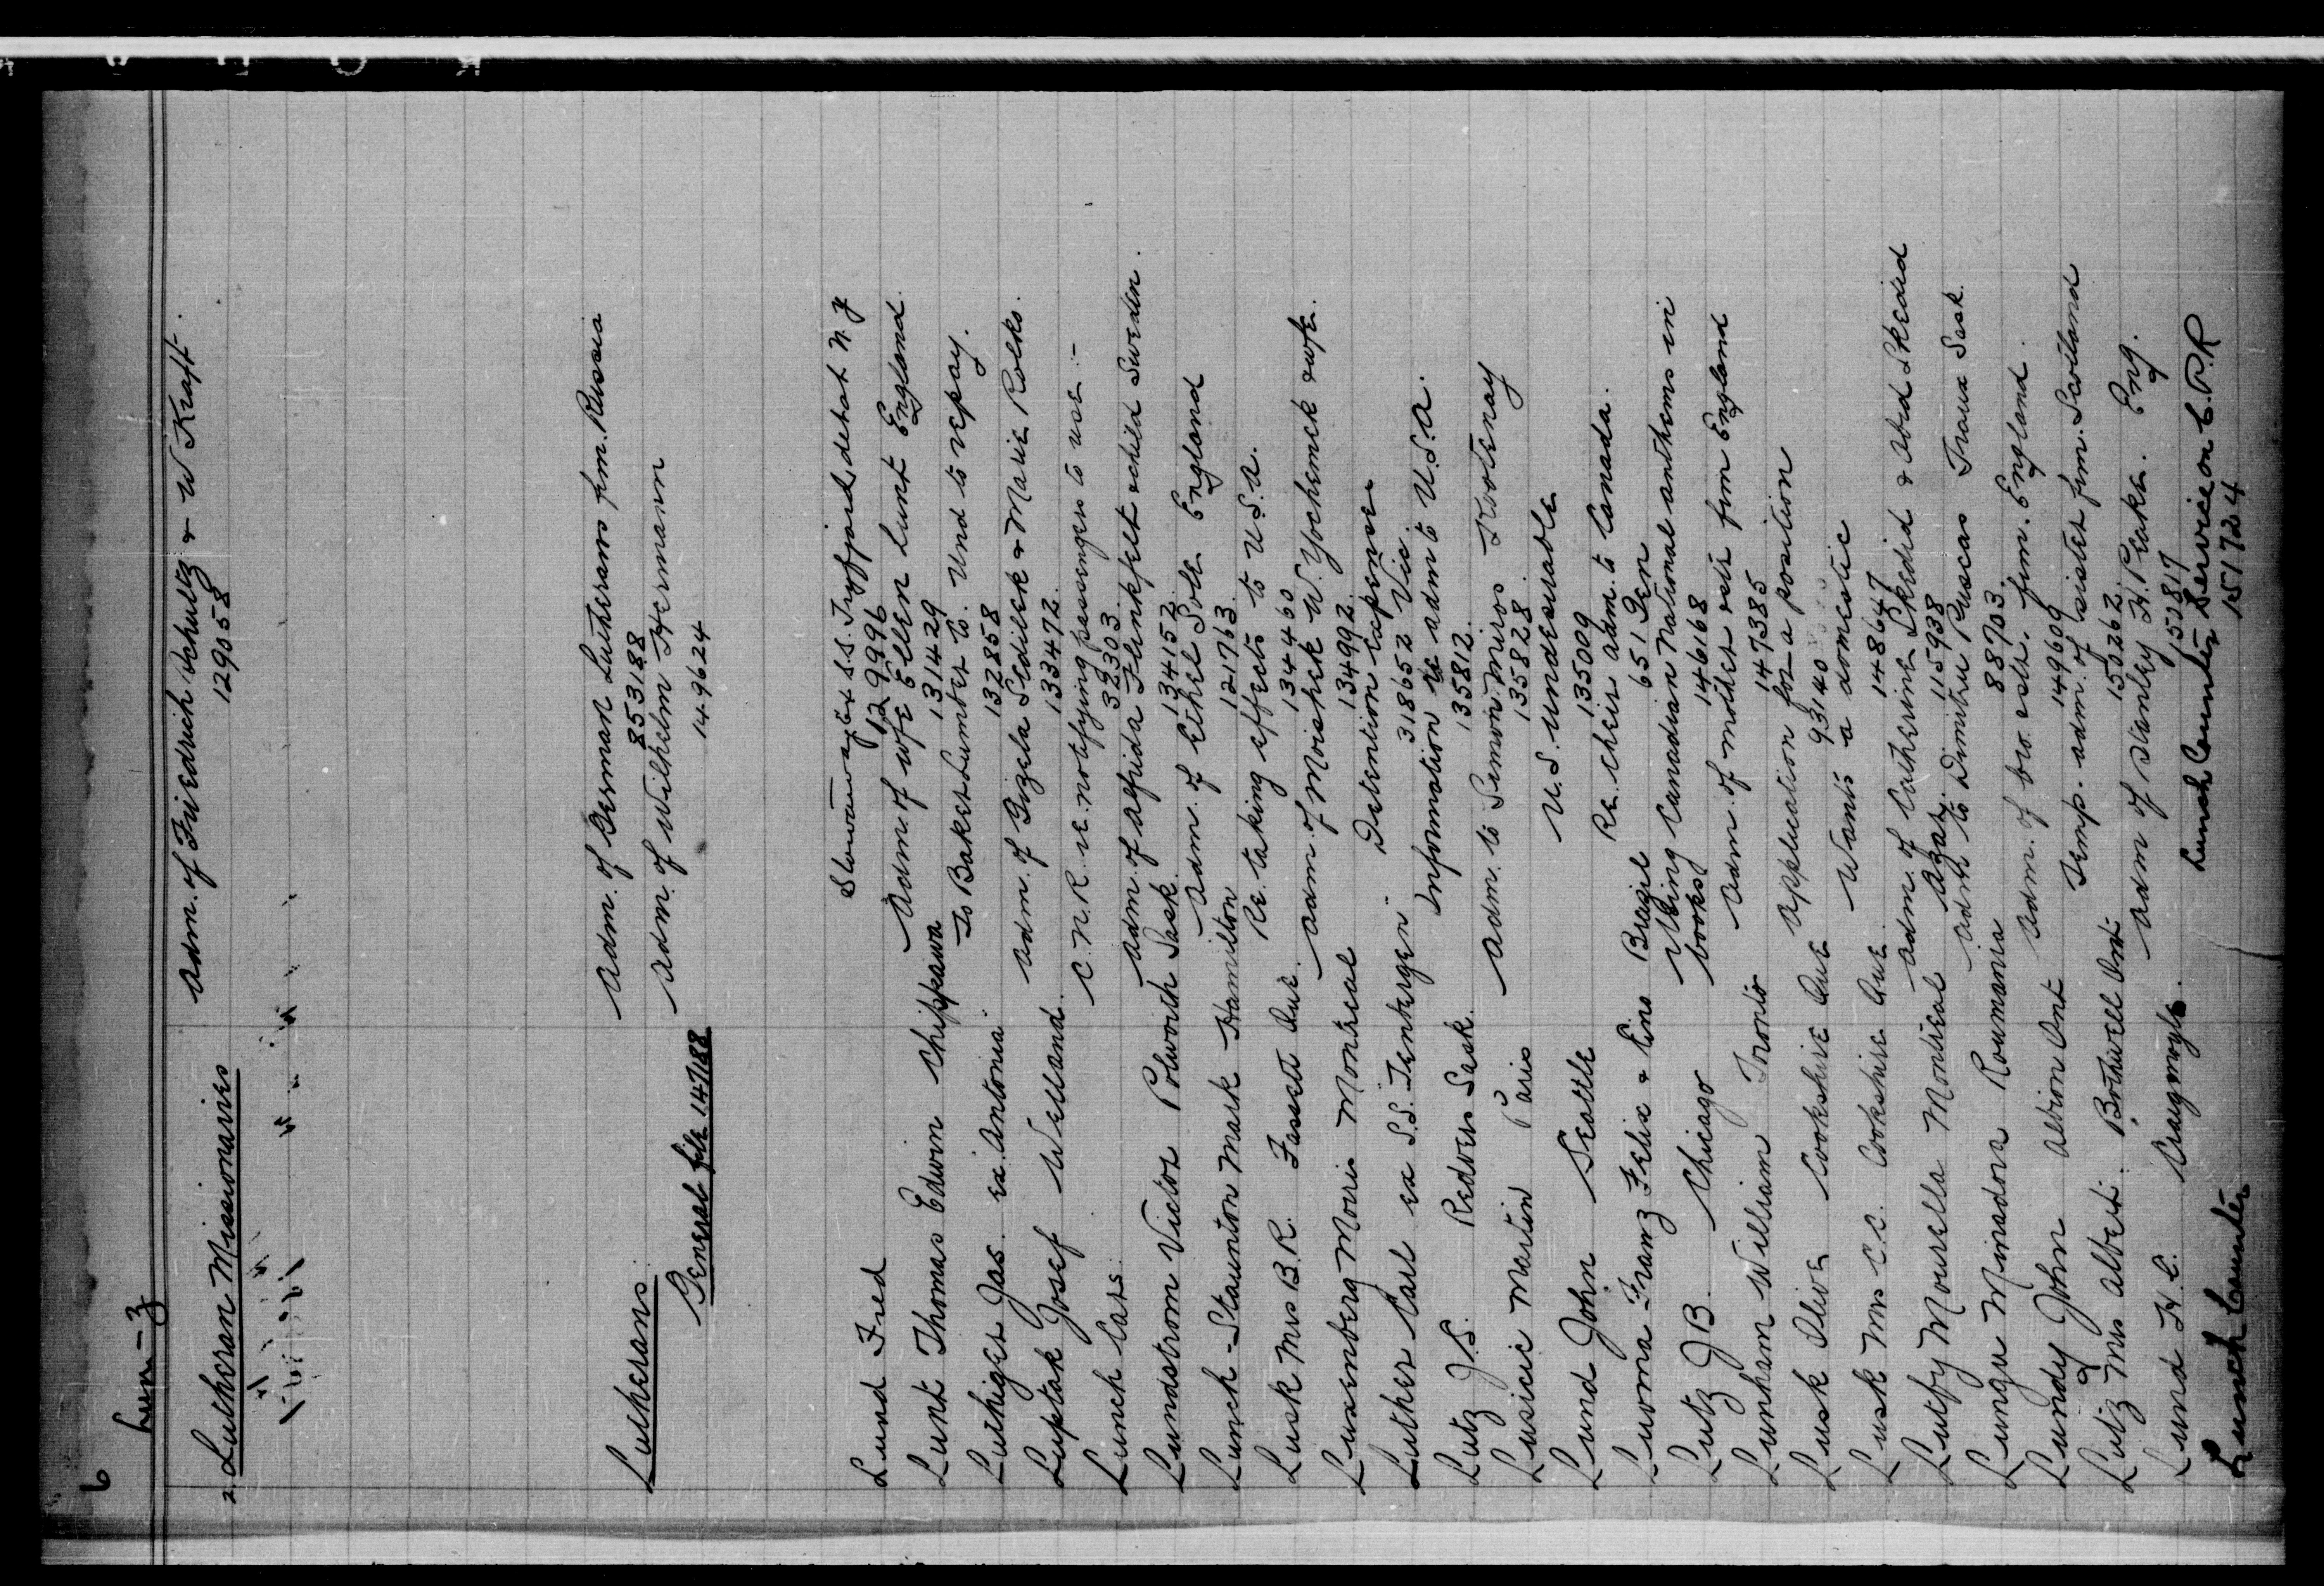 6
Lun-z
2 Lutheran Missionaries adm. of Friedrich Schultz & W Kraft.
129058
" " "
" " " " " " "
Lutherans adm. of German Lutherans frm. Russia
853188
adm. of Wilhelm Hermann
General file 147188 149624
Lund Fred Stowaway ex S.S. detat N.Y
129996
Lunt Thomas Edwin Chippawa Adm. of wfe Ellen Lunt England
131429
Luthiger Jas. ex Antonia To Baker Lumber Co. Und to repay.
132858
Luptak Josef Welland. adm. of Gizela Sedilek & Marie Rolko.
133472
Lunch Cars. C.N.R. re. notifying passengers to use :-
39303
Lundstrom Victor Polworth Sask. Adm. of Alfrida Flenkfelt & child Sweden.
134152
Lunch-Staunton Mark Hamilton Adm. of Ethel Sole England
121763
Lusk Mrs B.R. Fassett Que. Re. taking effects to U.S.A.
134460
Luxenberg Morris Montreal adm. of Moishek W. Yochemek & wfe.
134992
Luther Carl ex S.S. Tenbergen Detention Expenses
318652 Vic.
Lutz J.S. Redvers Sask. Information re adm to U.S.A.
135812
Lusicic Martin Paris adm. to Simon Miros Kootenay
135828
Lund John Seattle U.S. undesirable
135009
Luoma Franz Felix & Eino Brazil Re. their adm. to Canada.
651 Gen
Lutz J B. Chicago Using Canadian National anthems in
books 146168
Lunham William Toronto adm. of mother & sstr frm England
147385
Lusk Olive Cookshire Que application for a position
93140
Lusk Mrs C.C. Cookshire Que. Wants a domestic
148647
Lutfy Mourella Montreal adm. of Catherine Skedid & Abed Skedid
Azar. 115938
Lungu Minadora Roumania adm to Dimitru Puscas Traux Sask.
88703
Lundy John Albion Ont adm. of bro. & sstr. frm. England.
149609
Lutz Mrs Albert. Bothwell Ont. Temp. adm. of sister frm. Scotland
150262
Lund H.C. Craigmyle. Adm of Stanley H. Peake. Eng.
150817
Lunch Counter Lunch Counter Service on C.P.R
151724